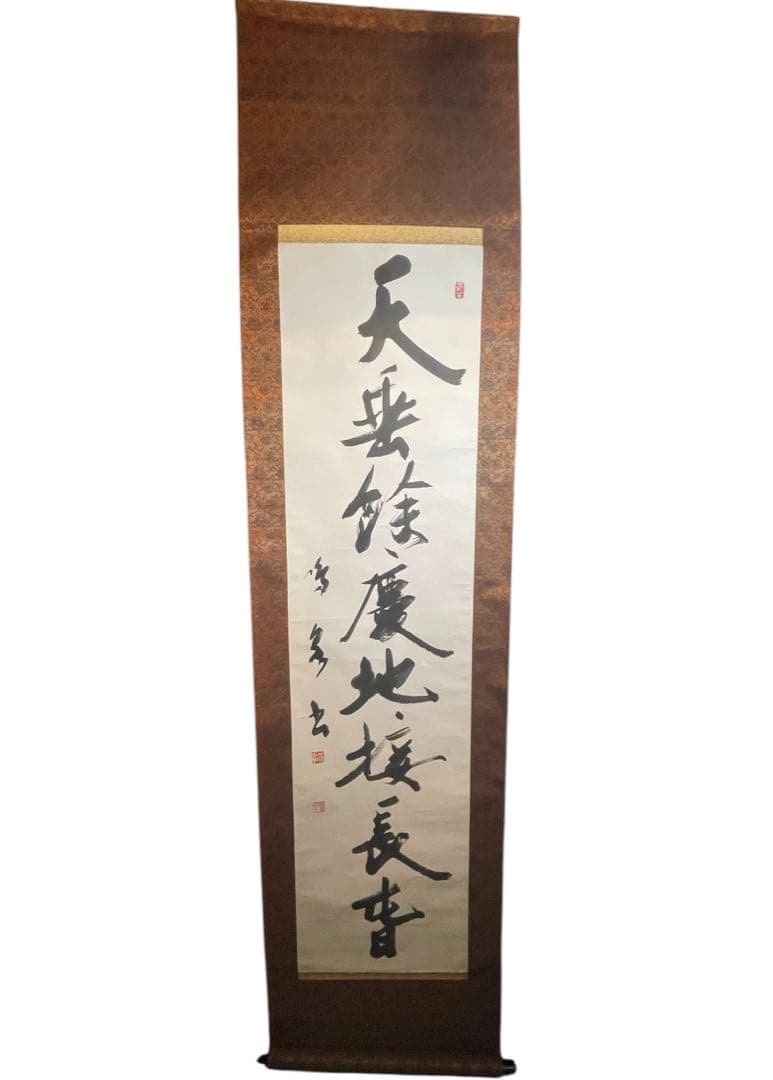 天垂餘慶地接長春
書